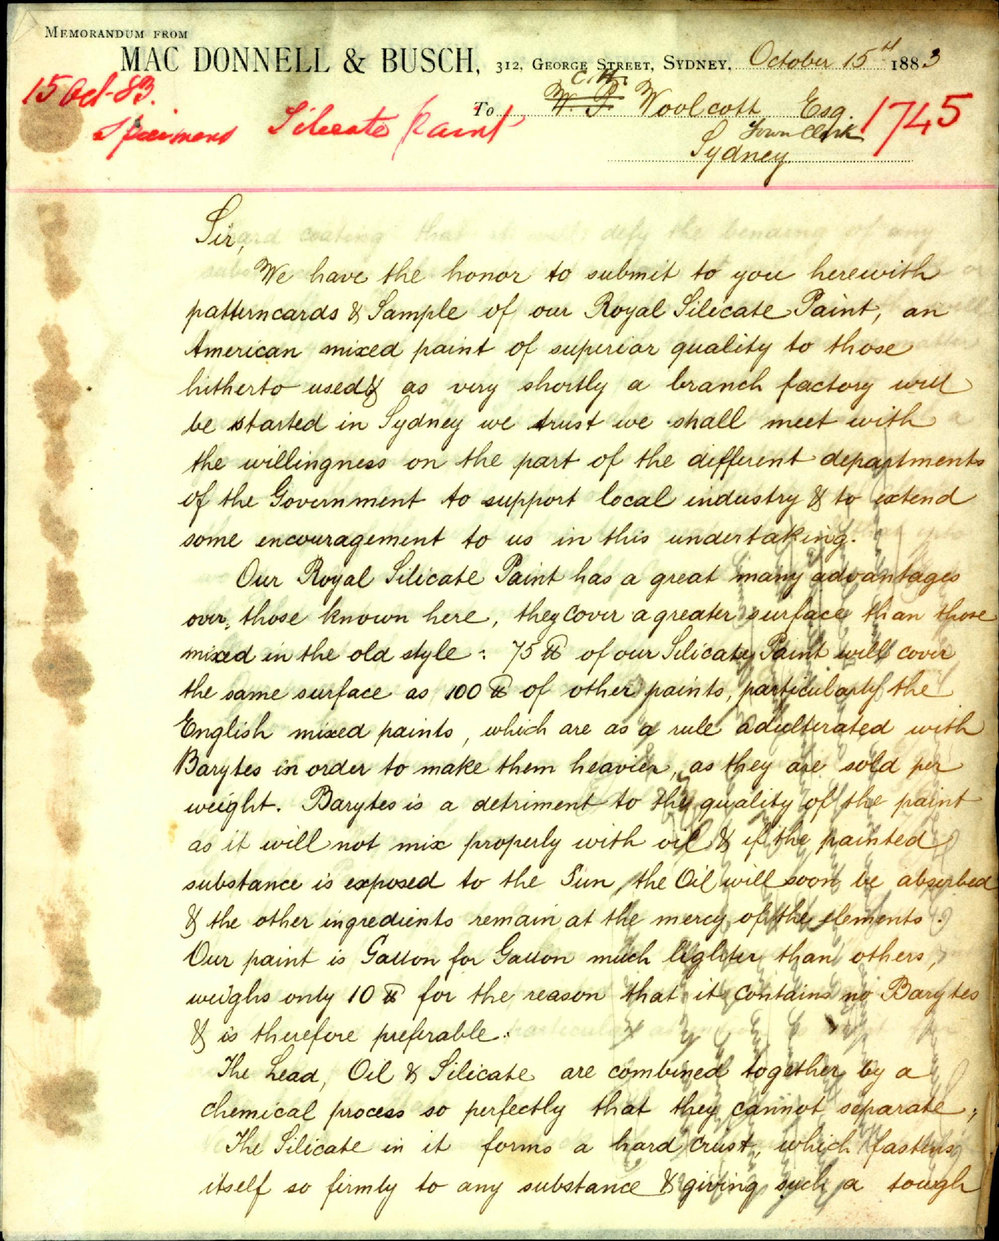 MEMORANDUM FROM
MAC DONNELL & BUSCH, 312, GEORGE STREET, SYDNEY, October 15th 1883
15 Oct-83.
Specimens Silicate Paint
To C. H. W. P. Woolcott Esq.
Town Clerk
1745
Sydney
Sir,
We have the honor to submit to you herewith
patterncards & Sample of our Royal Silicate Paint, an
American mixed paint of superior quality to those
hitherto used & as very shortly a branch factory will
be started in Sydney we trust we shall meet with
the willingness on the part of the different departments
of the Government to support local industry & to extend
some encouragement to us in this undertaking.
Our Royal Silicate Paint has a great many advantages
over those known here, they cover a greater surface than those
mixed in the old style: 75 lb of our Silicate Paint will cover
the same surface as 100 lb of other paints, particularly of the
English mixed paints, which are as a rule adulterated with
Barytes in order to make them heavier, as they are sold per
weight. Barytes is a detriment to the quality of the paint
as it will not mix properly with oil & if the painted
substance is exposed to the Sun, the Oil will soon be absorbed
& the other ingredients remain at the mercy of the elements.
Our paint is Gallon for Gallon much lighter than others,
weighs only 10 lb for the reason that it contains no Barytes
& is therefore preferable.
The Lead, Oil & Silicate are combined together by a
chemical process so perfectly that they cannot separate;
The Silicate in it forms a hard crust, which fastens
itself so firmly to any substance & giving such a tough